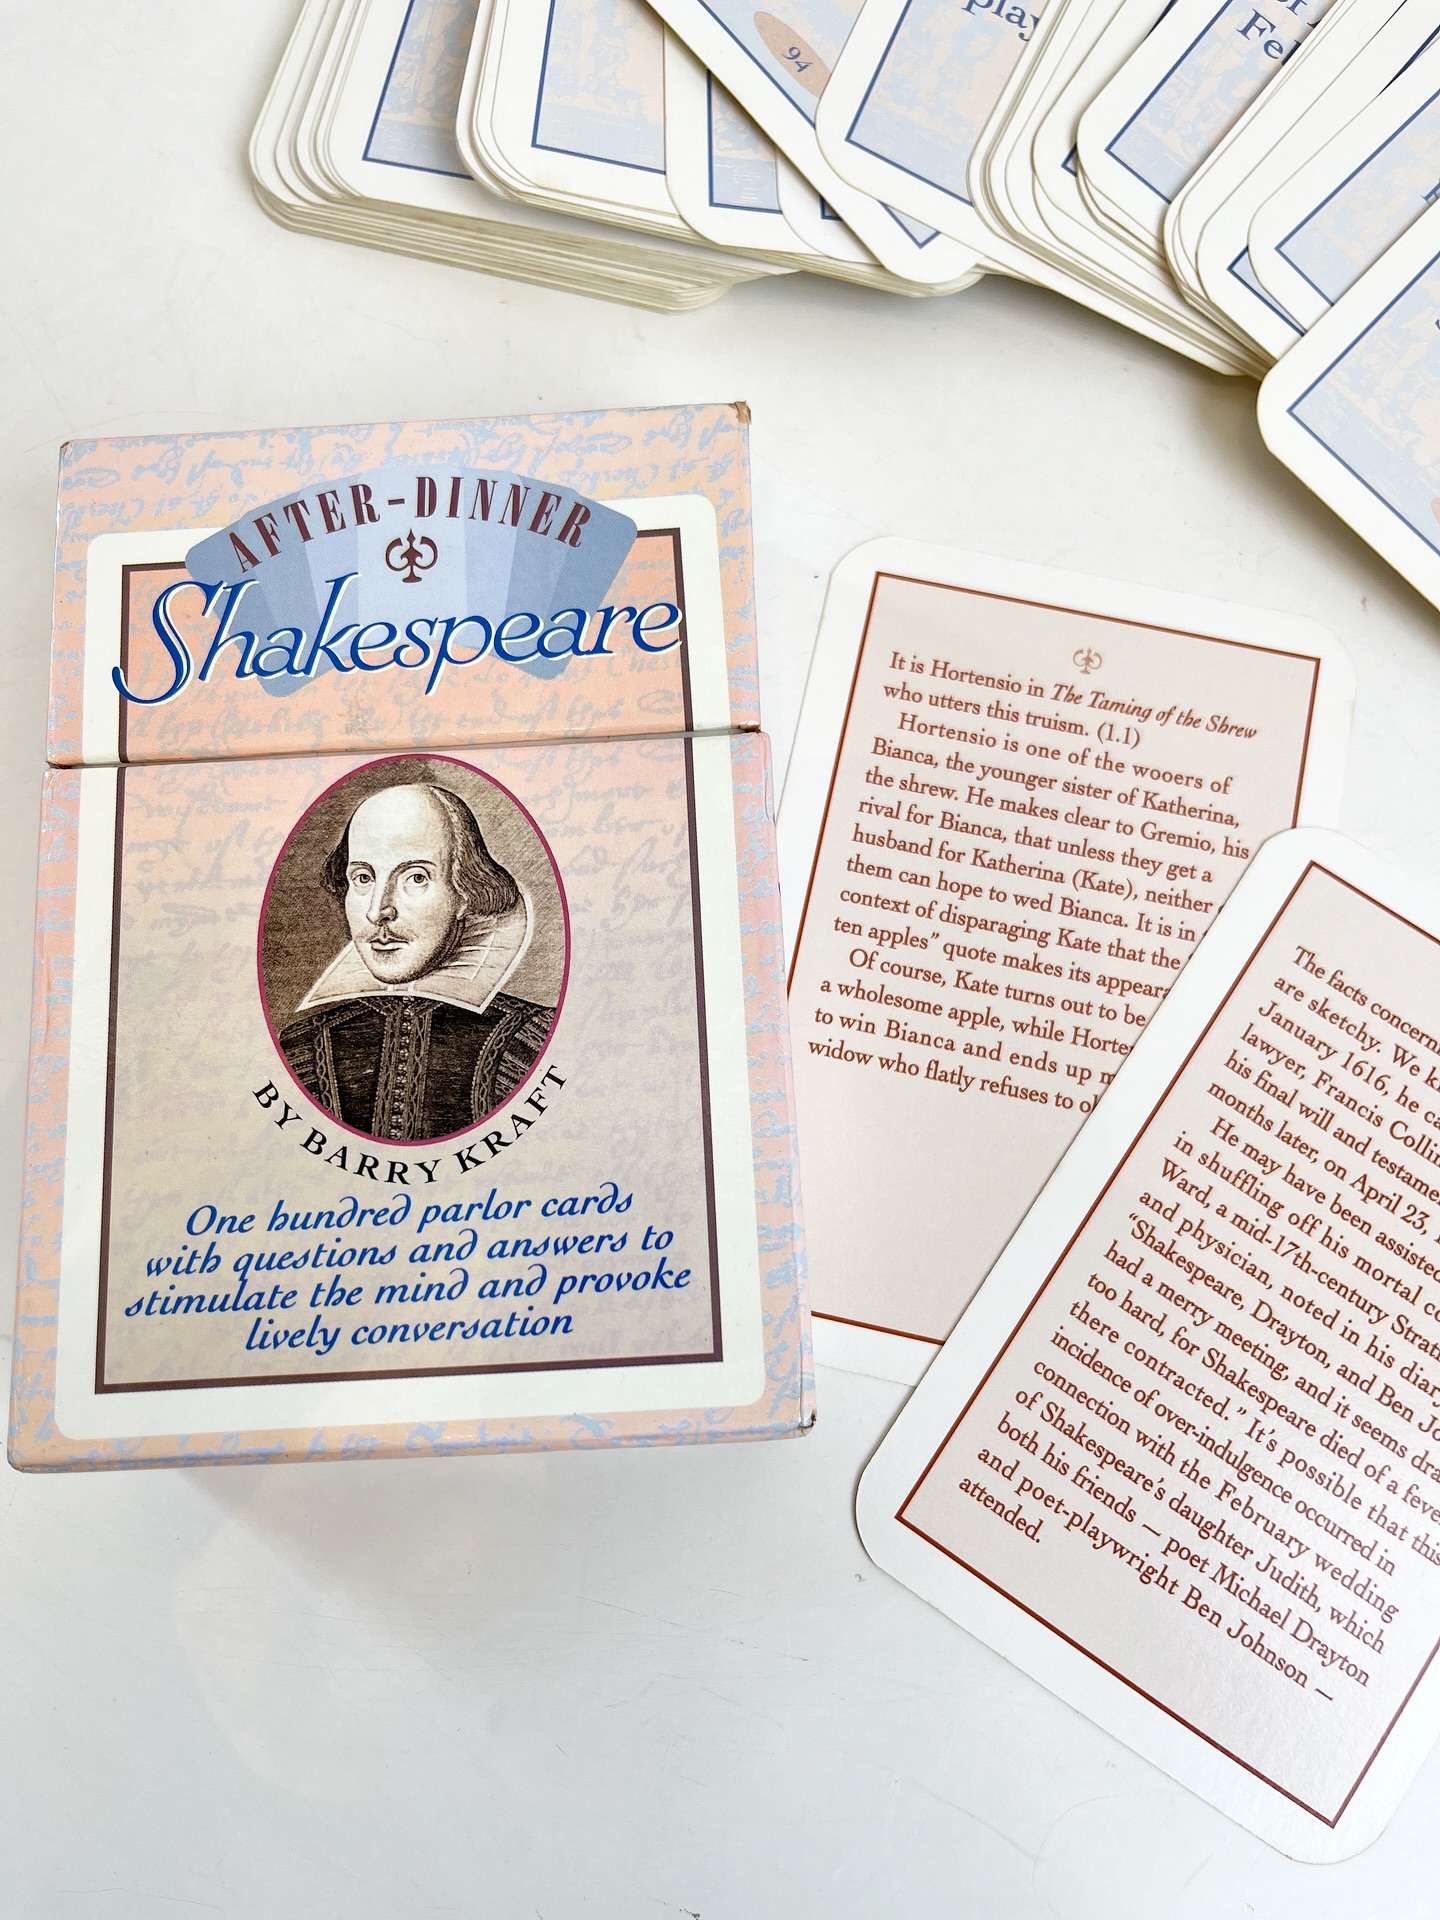 94
play
Feb
AFTER-DINNER
Shakespeare
BY BARRY KRAFT
One hundred parlor cards
with questions and answers to
stimulate the mind and provoke
lively conversation
It is Hortensio in The Taming of the Shrew
who utters this truism. (1.1)
Hortensio is one of the wooers of
Bianca, the younger sister of Katherina,
the shrew. He makes clear to Gremio, his
rival for Bianca, that unless they get a
husband for Katherina (Kate), neither
them can hope to wed Bianca. It is in
context of disparaging Kate that the
ten apples” quote makes its appear
Of course, Kate turns out to be
a wholesome apple, while Horte
to win Bianca and ends up
widow who flatly refuses to
The facts concern
are sketchy. We
January 1616, he
lawyer, Francis Collin
his final will and testame
months later, on April 23,
He may have been assisted
in shuffling off his mortal
Ward, a mid-17th-century Strat
and physician, noted in his diar
“Shakespeare, Drayton, and Ben Jo
had a merry meeting, and it seems dra
too hard, for Shakespeare died of a feve
there contracted.” It’s possible that this
incidence of over-indulgence occurred in
connection with the February wedding
of Shakespeare’s daughter Judith, which
both his friends — poet Michael Drayton
and poet-playwright Ben Johnson —
attended.